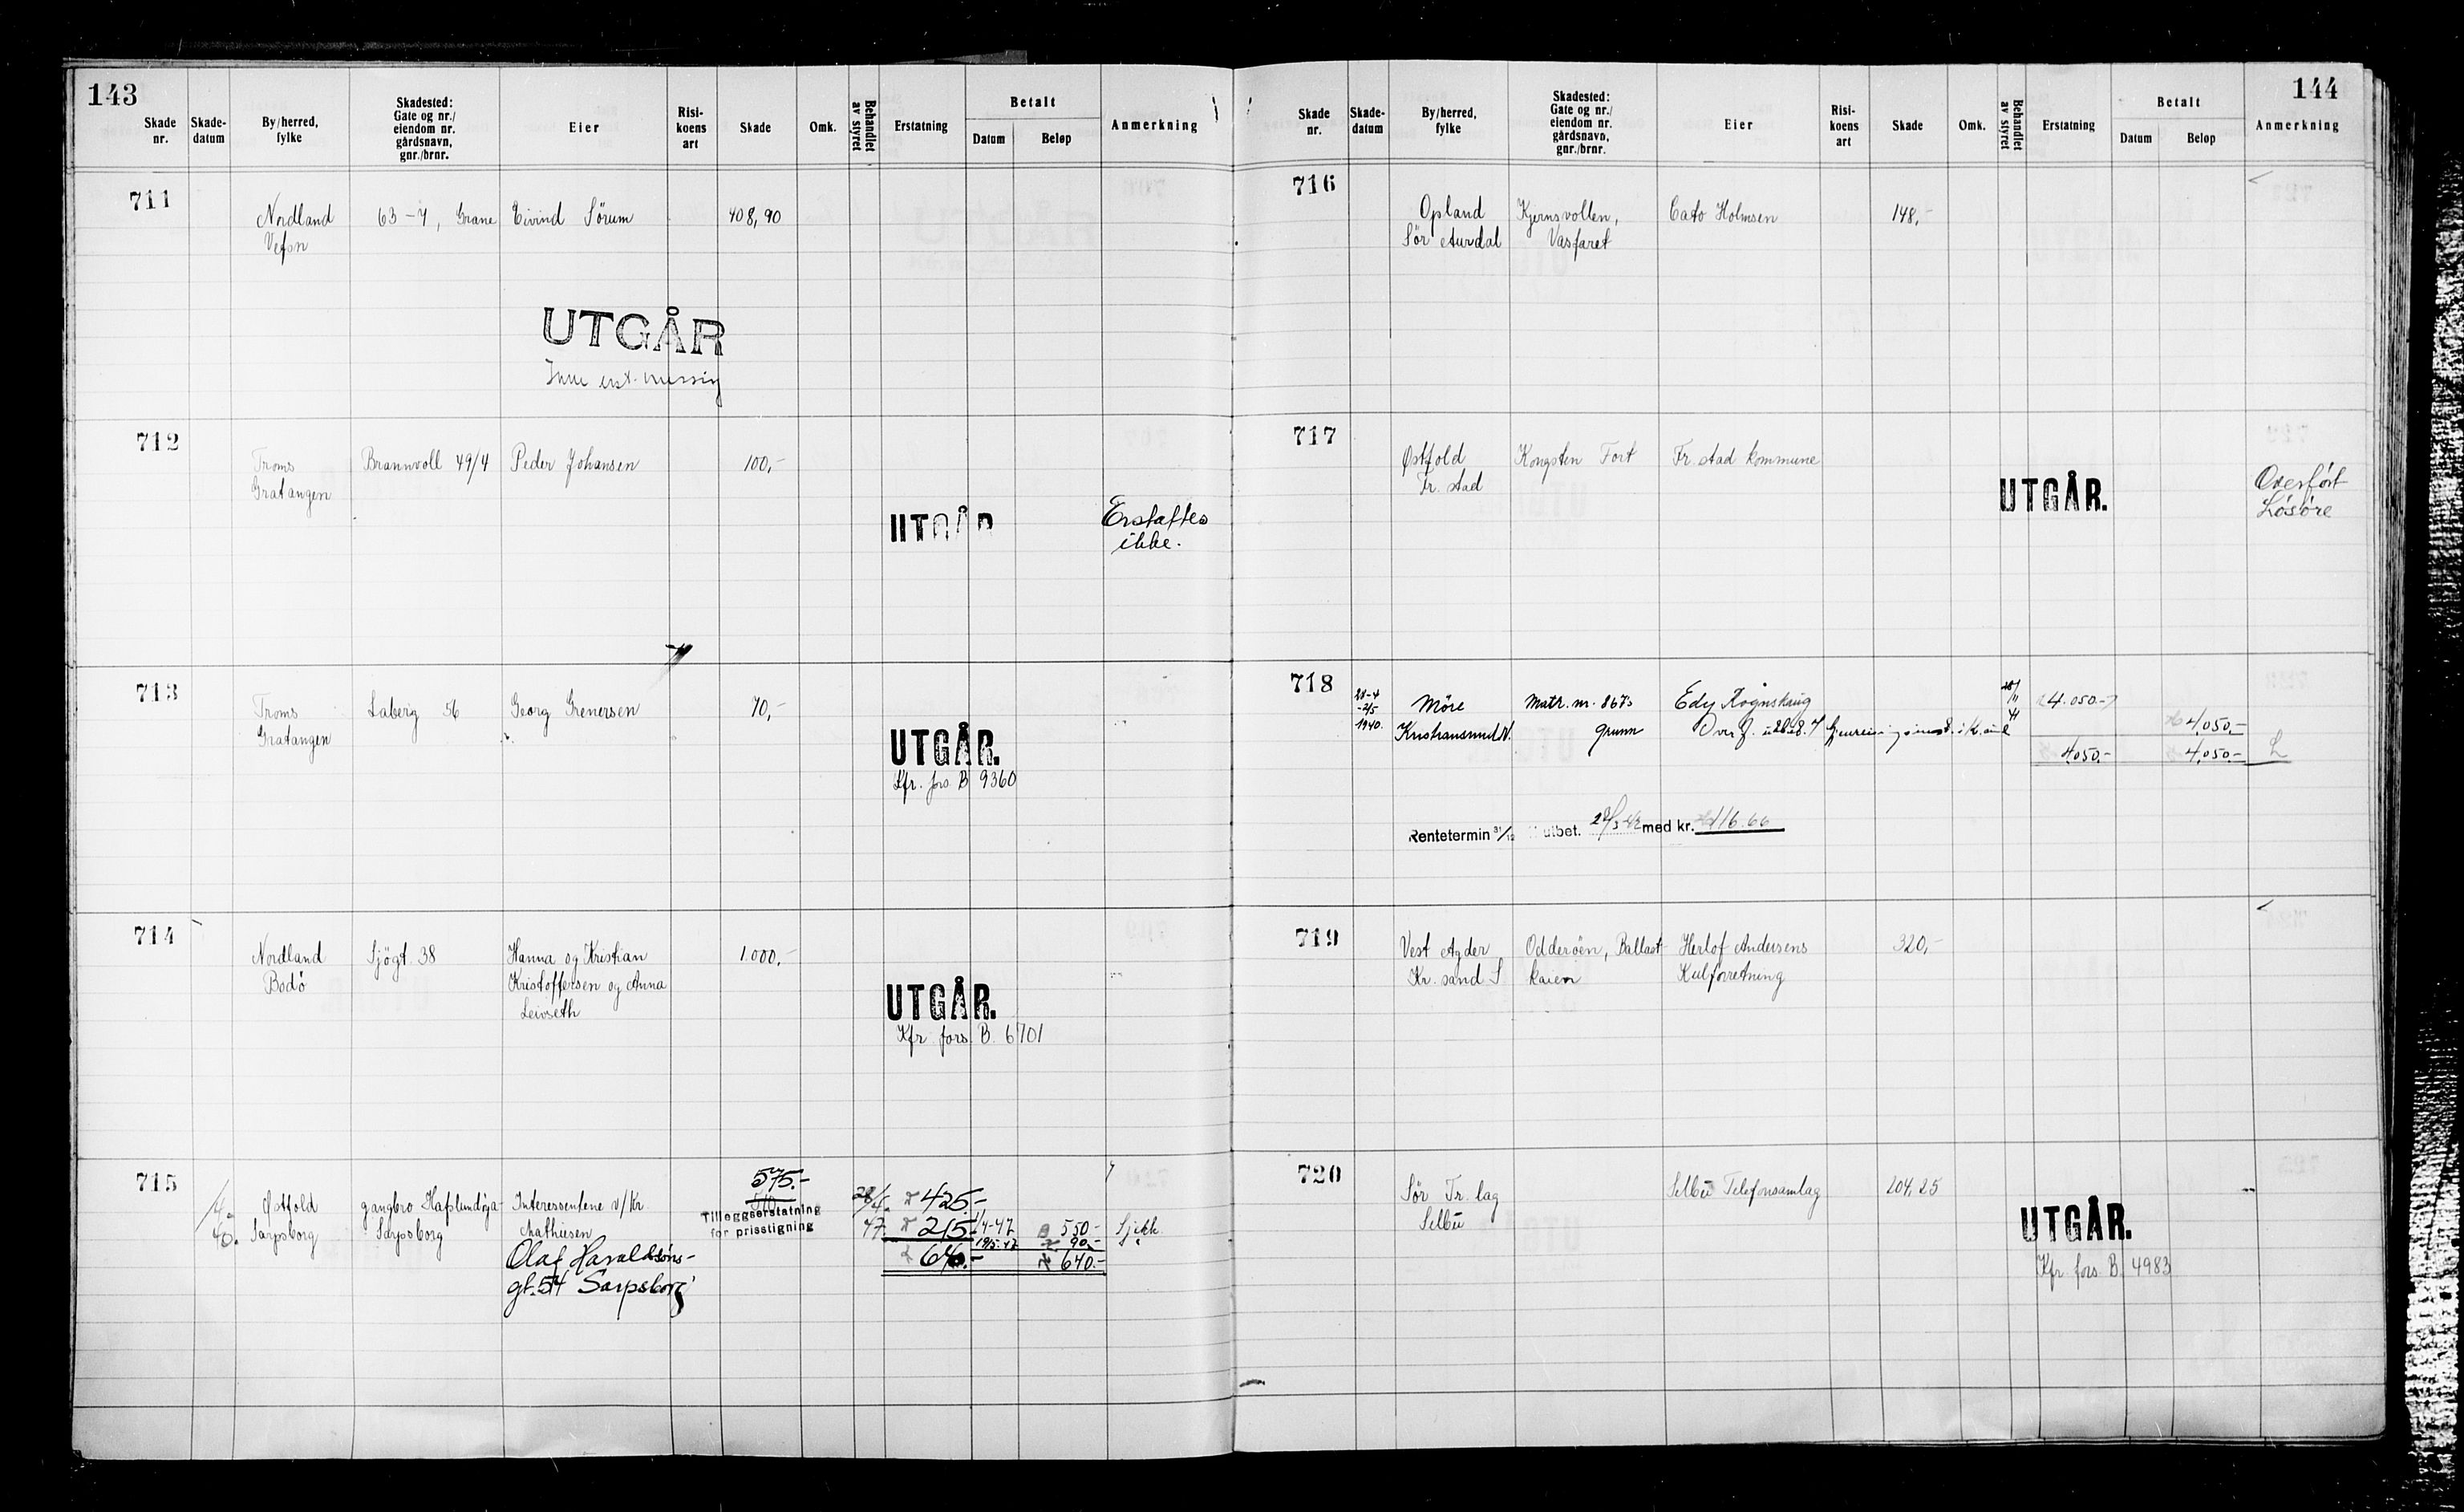 143
Skade nr. Skade-datum By/herred, fylke Skadested: Gate og nr./ eiendom nr. gårdsnavn, gnr./brnr. Eier Risi-koens art Skade Omk. Behandlet av styret Erstatning Betalt Datum Beløp Anmerkning
711
Nordland 63-7, Grane Eivind Sörum 408,90
Vefsn
UTGÅR
712
Troms Brannvoll 49/4 Peder Johansen 100,-
Gratangen
UTGÅR Erstattes
ikke.
713
Troms Laberg 56 Georg Grenersen 70,-
Gratangen
UTGÅR.
Kfr. fors B 9360
714
Nordland Sjögt. 38 Hanna og Kristian 1.000,-
Bodö Kristoffersen og Anna
Leivseth
UTGÅR.
Kfr fors. B. 6701
715
575.-
Østfold gangbro Haflundöya- Interessentene v/Kr. 28/4. 425.-
Sarpsborg Sarpsborg Mathiesen Tilleggserstatning for prisstigning 47. 215.- 1/4-47 550.- Sjekk.
19/5-47 90.-
640.- 640.-
Olaf Haraldsöns-
gt. 54 Sarpsborg
144
Skade nr. Skade-datum By/herred, fylke Skadested: Gate og nr./ eiendom nr. gårdsnavn, gnr./brnr. Eier Risi-koens art Skade Omk. Behandlet av styret Erstatning Betalt Datum Beløp Anmerkning
716
Opland Kjernsvollen, Cato Holmsen 148,-
Sör Aurdal Vasfaret
717
Østfold Kongsten Fort Fr.stad kommune
Fr. stad
UTGÅR. Overfört
Lösöre
718
Möre Matr. nr. 867 Edy Rognskaug 4.050.-
1940. Kristiansund N. grunn 4,050,-
4,050.- 4,050.- L
Rentetermin 31/12 utbet. med kr. 116.66
719
Vest Agder Odderöen, Ballast- Herlof Andersens 320,-
Kr. sand S kaien Kulforretning
720
Sör Tr. lag Selbu Telefonsamlag 204,25
Selbu
UTGÅR.
Kfr fors. B. 4983